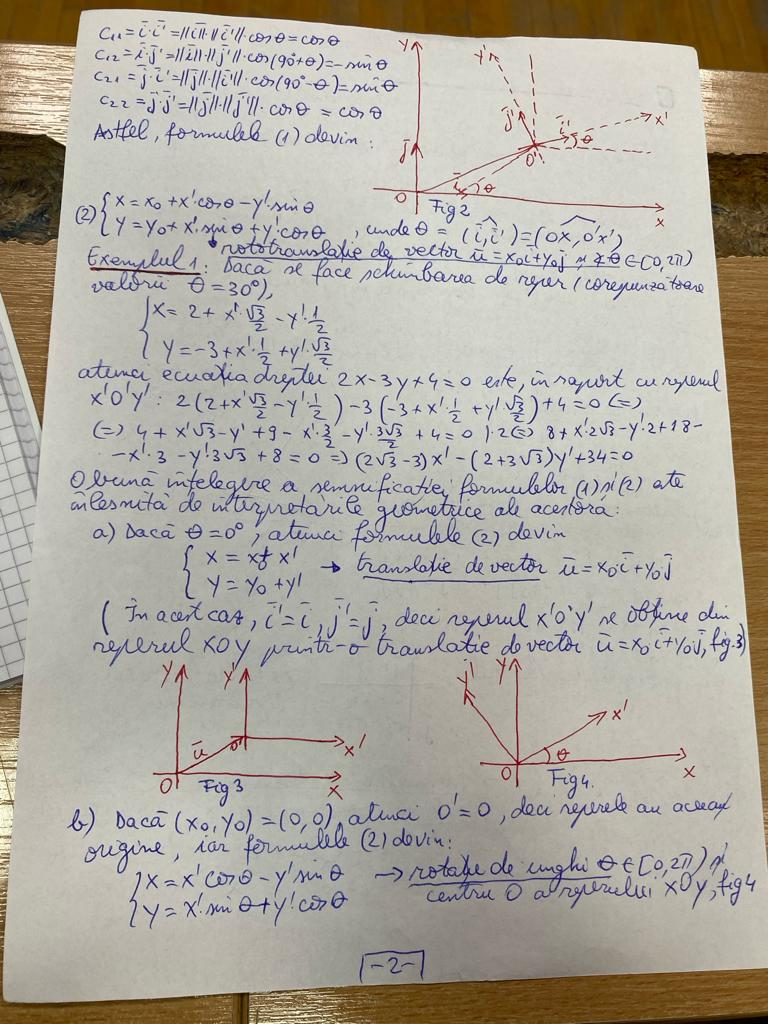 c₁₁ = ī·ī' = ||ī||·||ī'||·cosθ = cosθ
c₁₂ = ī·j̄' = ||ī||·||j̄'||·cos(90°+θ) = -sinθ
c₂₁ = j̄·ī' = ||j̄||·||ī'||·cos(90°-θ) = sinθ
c₂₂ = j̄·j̄' = ||j̄||·||j̄'||·cosθ = cosθ
Astfel, formulele (1) devin:
y y' x' j̄' ī' θ O' j̄ ī θ O x
Fig 2
(2) { x = x₀ + x'cosθ - y'sinθ
y = y₀ + x'sinθ + y'cosθ, unde θ = (ī, ī') = (Ox, O'x')
→ rototranslație de vector ū = x₀ī + y₀j̄ și ∢ θ ∈ [0, 2π)
Exemplul 1: Dacă se face schimbarea de reper (corepunzătoare
valorii θ = 30°),
{ x = 2 + x'·√3/2 - y'·1/2
y = -3 + x'·1/2 + y'·√3/2
atunci ecuația dreptei 2x - 3y + 4 = 0 este, în raport cu reperul
x'O'y': 2(2 + x'√3/2 - y'·1/2) - 3(-3 + x'·1/2 + y'·√3/2) + 4 = 0 (=)
(=) 4 + x'√3 - y' + 9 - x'·3/2 - y'·3√3/2 + 4 = 0 |·2 (=) 8 + x'·2√3 - y'·2 + 18 -
- x'·3 - y'·3√3 + 8 = 0 => (2√3 - 3)x' - (2 + 3√3)y' + 34 = 0
O bună înțelegere a semnificației formulelor (1) și (2) este
înlesnită de interpretările geometrice ale acestora:
a) Dacă θ = 0°, atunci formulele (2) devin
{ x = x₀ + x'
y = y₀ + y' → translație de vector ū = x₀ī + y₀j̄
(În acest caz, ī' = ī, j̄' = j̄, deci reperul x'O'y' se obține din
reperul xOy printr-o translație de vector ū = x₀ī + y₀j̄, fig.3)
y y' ū O' x' O x
Fig 3
y' y x' θ O x
Fig 4.
b) Dacă (x₀, y₀) = (0, 0), atunci O' = O, deci reperele au aceeași
origine, iar formulele (2) devin:
{ x = x'cosθ - y'sinθ → rotație de unghi θ ∈ [0, 2π) și
y = x'sinθ + y'cosθ centru O a reperului xOy, fig 4
-2-